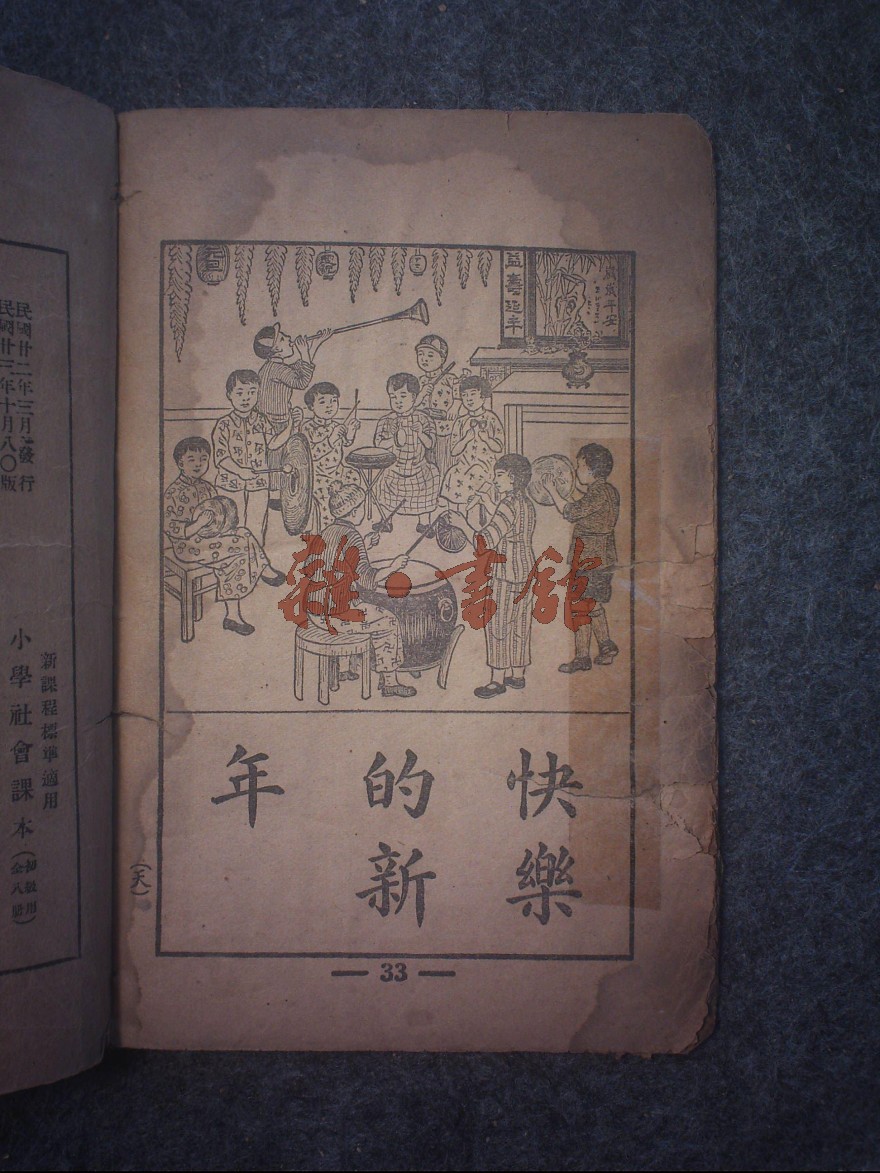 元旦
益壽延年
歲歲平安
快樂
的新
年
(天)
— 33 —
雜·書館
民國廿二年三月發行
民國廿三年十月八〇版
新課程標準適用
小學社會課本
(初級用
全八冊)